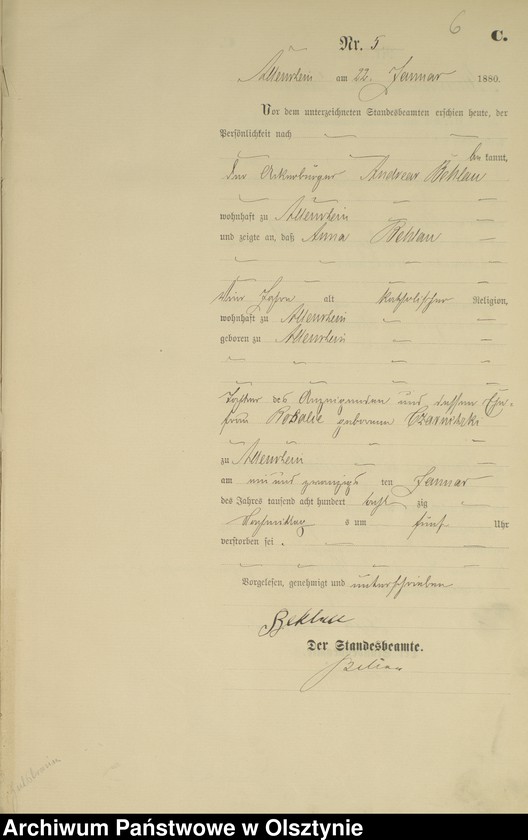 6
C.
Nr. 5.
Allenstein am 22. Januar 1880.
Vor dem unterzeichneten Standesbeamten erschien heute, der
Persönlichkeit nach
be kannt,
der Ackerbürger Andreas
wohnhaft zu Allenstein
und zeigte an, daß Anna
alt katholischer Religion,
wohnhaft zu Allenstein
geboren zu Allenstein
Tochter des Anzeigenden und dessen Ehe-
frau Rosalie geborenen
zu Allenstein
am ein und zwanzigs ten Januar
des Jahres tausend acht hundert acht zig
Nachmittag s um fünf Uhr
verstorben sei.
Vorgelesen, genehmigt und unterschrieben
Der Standesbeamte.
Archiwum Państwowe w Olsztynie